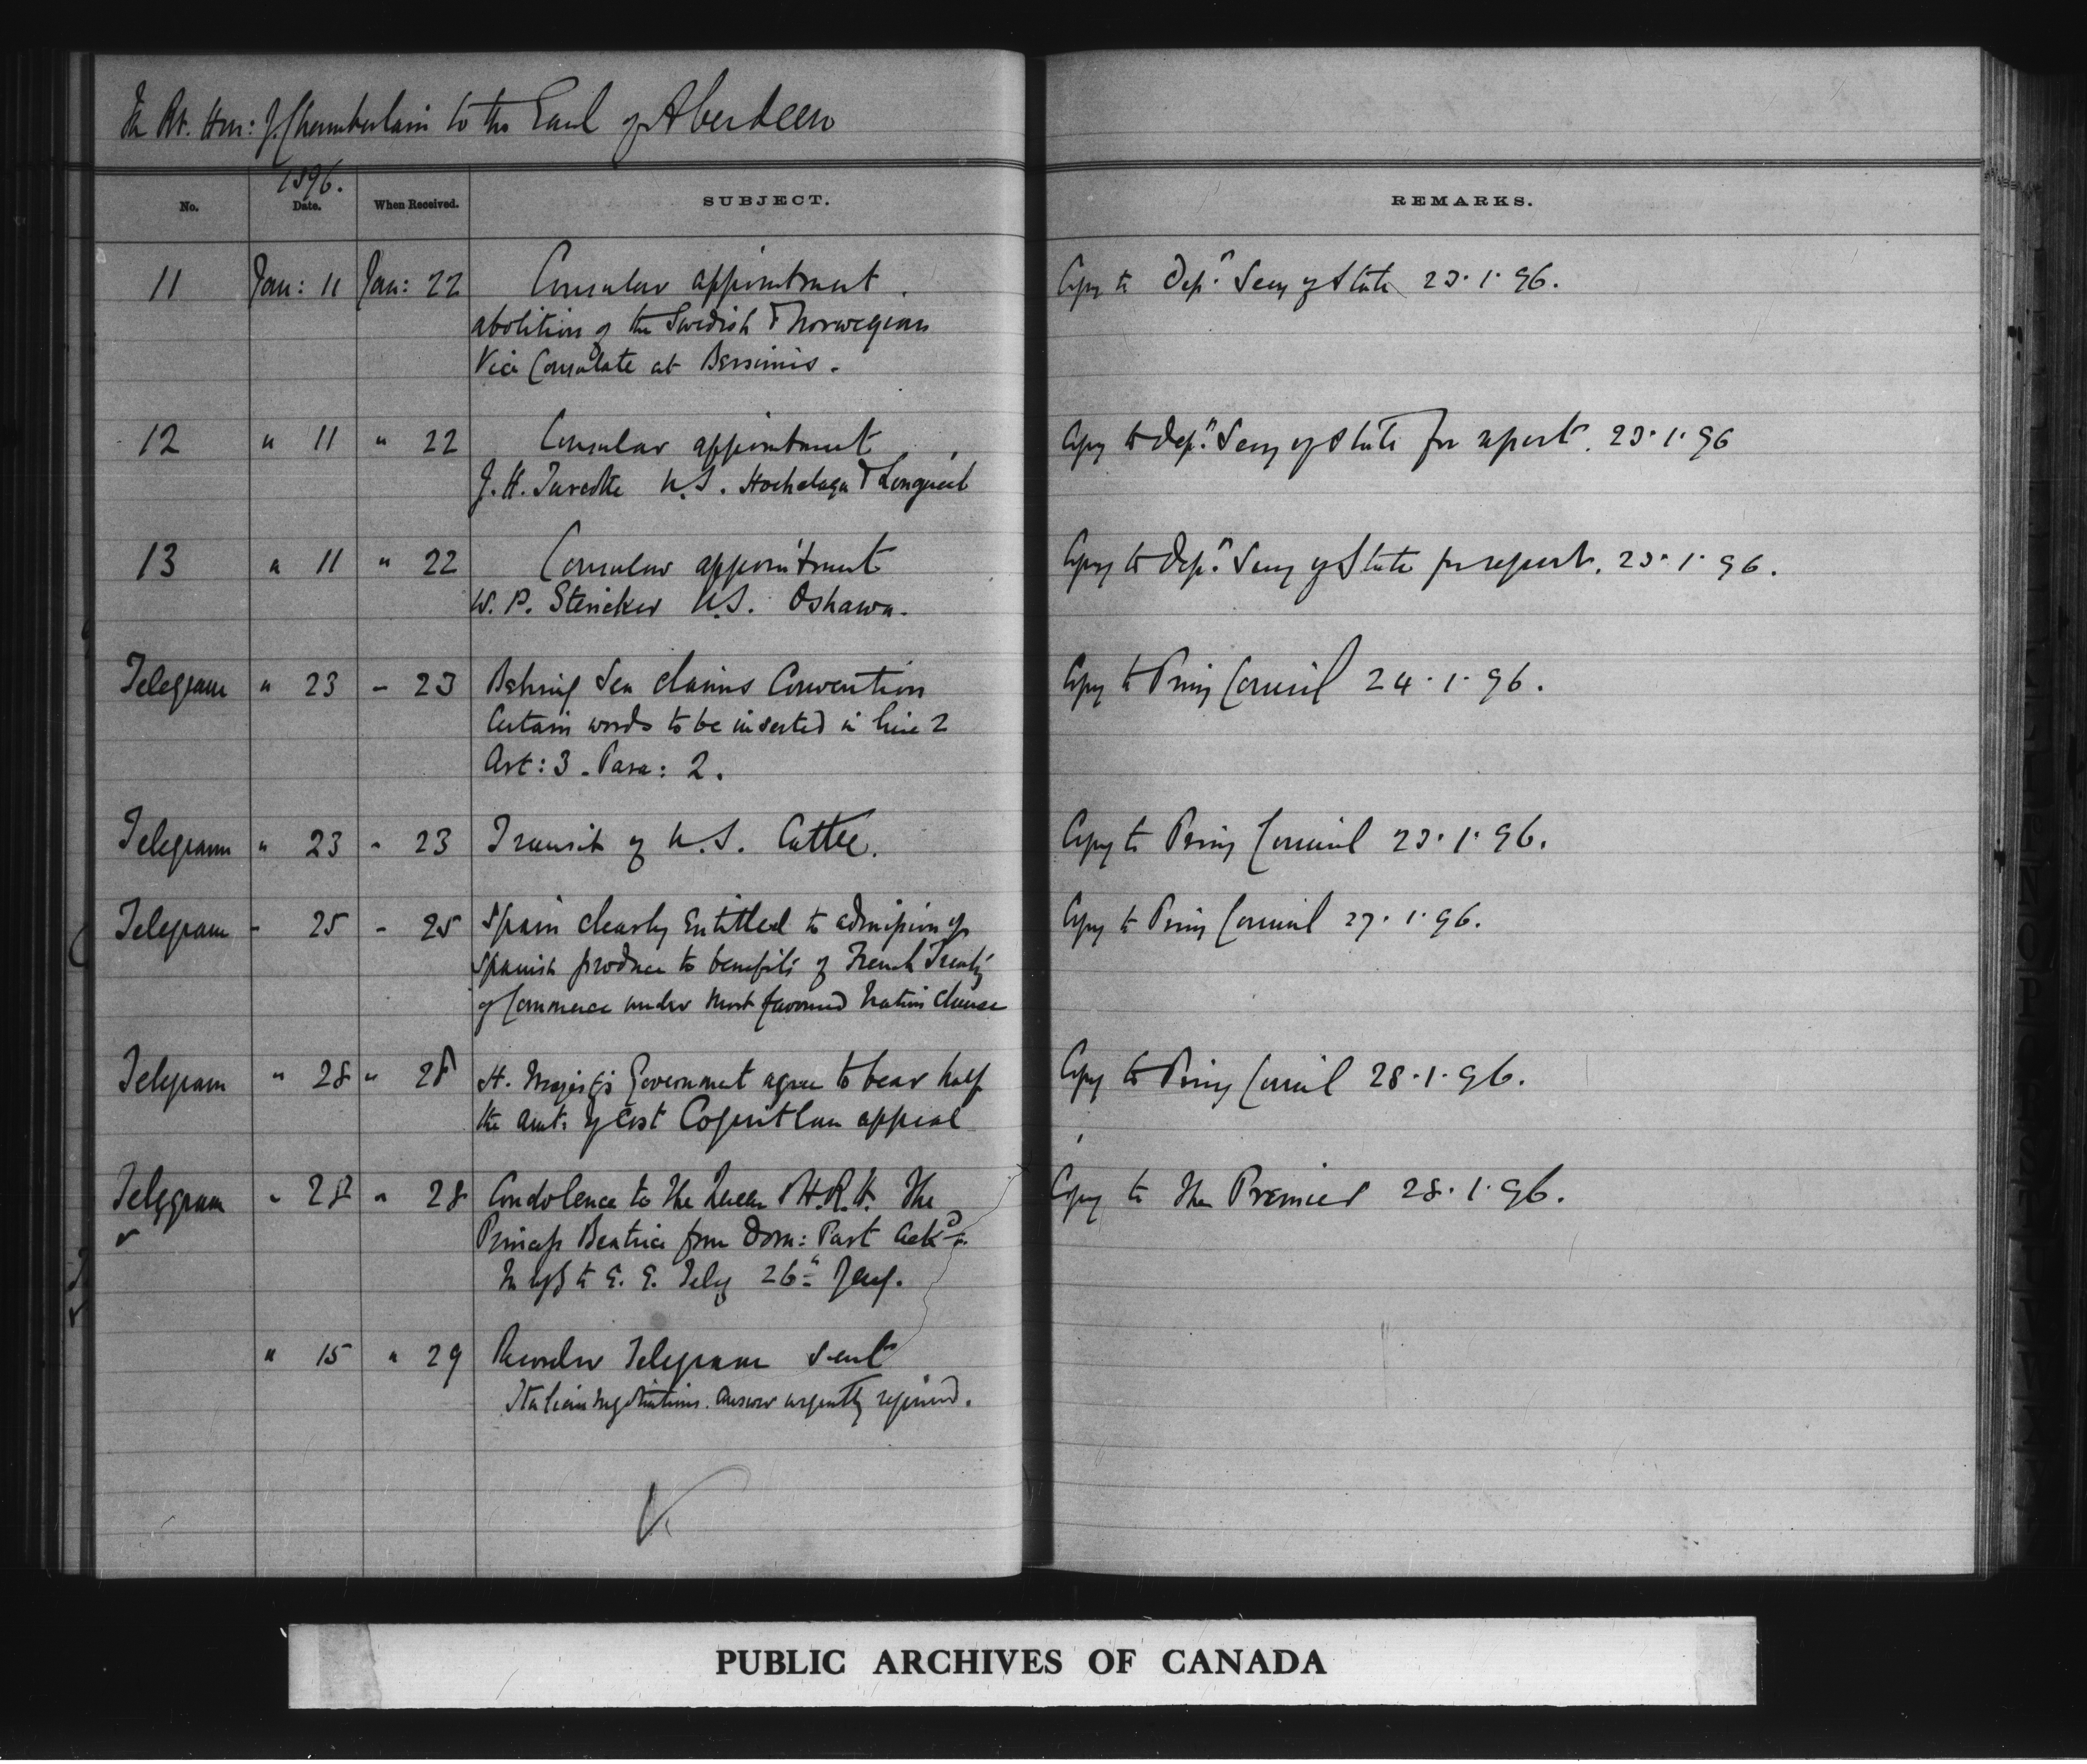 The Rt. Hon: J. Chamberlain to the Earl of Aberdeen
1896.
No. Date. When Received. SUBJECT. REMARKS.
11 Jan: 11 Jan: 22 Consular appointment. Copy to Dep. Secy of State 23.1.96.
abolition of the Swedish & Norwegian
Vice Consulate at Bersimis.
12 " 11 " 22 Consular appointment Copy to Dep. Secy of State for report. 23.1.96
J. H. U.S. Hochelaga & Longueil
13 " 11 " 22 Consular appointment Copy to Dep. Secy of State for report. 23.1.96.
W. P. Stericker U.S. Oshawa.
Telegram " 23 - 23 Behring Sea claims Convention Copy to Privy Council 24.1.96.
Certain words to be inserted in line 2
Art: 3. Para: 2.
Telegram " 23 - 23 Transit of U.S. Cattle. Copy to Privy Council 23.1.96.
Telegram - 25 - 25 Spain clearly Entitled to admission of Copy to Privy Council 27.1.96.
Spanish produce to benefits of French Treaty
of Commerce under Most favoured Nation Clause
Telegram " 28 " 28 H. Majesty's Government agree to bear half Copy to Privy Council 28.1.96.
the amt. of cost Coquitlam appeal
Telegram " 28 " 28 Condolence to The Queen & H.R.H. The Copy to The Premier 28.1.96.
Princess Beatrice from Dom: Parl. Ackd.
26th Jany.
" 15 " 29 Telegram sent
Italian negotiations. Answer urgently required.
PUBLIC ARCHIVES OF CANADA